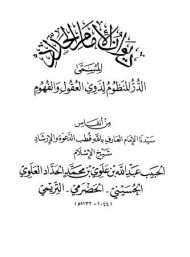 ديوان الإمام الحداد
المسمى
الدر المنظوم لذوي العقول والفهوم
من أنفاس
سيدنا الإمام العارف بالله قطب الدعوة والإرشاد
شيخ الإسلام
الحبيب عبد الله بن علوي بن محمد الحداد العلوي
الحسيني الحضرمي التريمي
(١٠٤٤ - ١١٣٢ هـ)